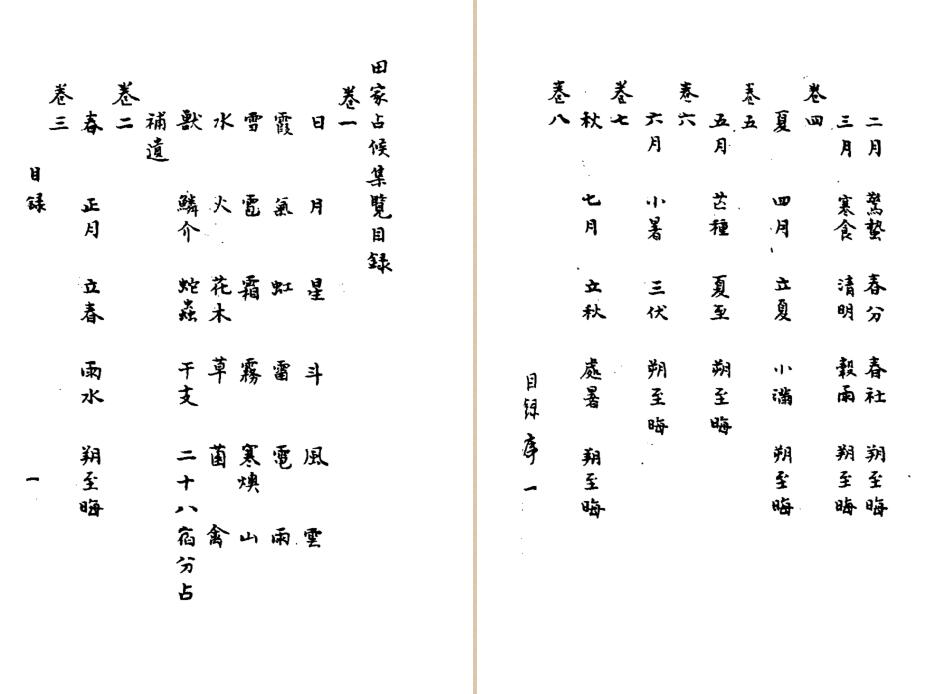 田家占候集覽目錄
卷一
日 月 星 斗 風 雲
霞 氣 虹 雷 電 雨
雪 雹 霜 霧 寒燠 山
水 火 花木 草 菌 禽
獸 鱗介 蛇蟲 干支 二十八宿分占
補遺
卷二
春 正月 立春 雨水 朔至晦
卷三
目錄 一
二月 驚蟄 春分 春社 朔至晦
三月 寒食 清明 穀雨 朔至晦
卷四
夏 四月 立夏 小滿 朔至晦
卷五
五月 芒種 夏至 朔至晦
卷六
六月 小暑 三伏 朔至晦
卷七
秋 七月 立秋 處暑 朔至晦
卷八
目録 序 一